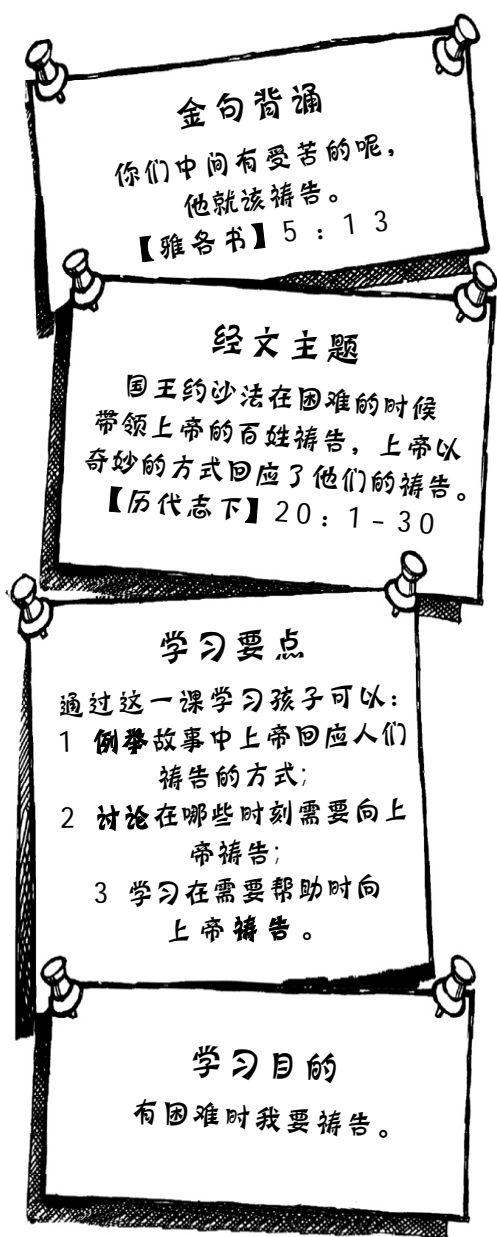 金句背诵
你们中间有受苦的呢，
他就该祷告。
【雅各书】5：13
经文主题
国王约沙法在困难的时候
带领上帝的百姓祷告，上帝以
奇妙的方式回应了他们的祷告。
【历代志下】20：1-30
学习要点
通过这一课学习孩子可以：
1 例举故事中上帝回应人们
祷告的方式；
2 讨论在哪些时刻需要向上
帝祷告；
3 学习在需要帮助时向
上帝祷告。
学习目的
有困难时我要祷告。